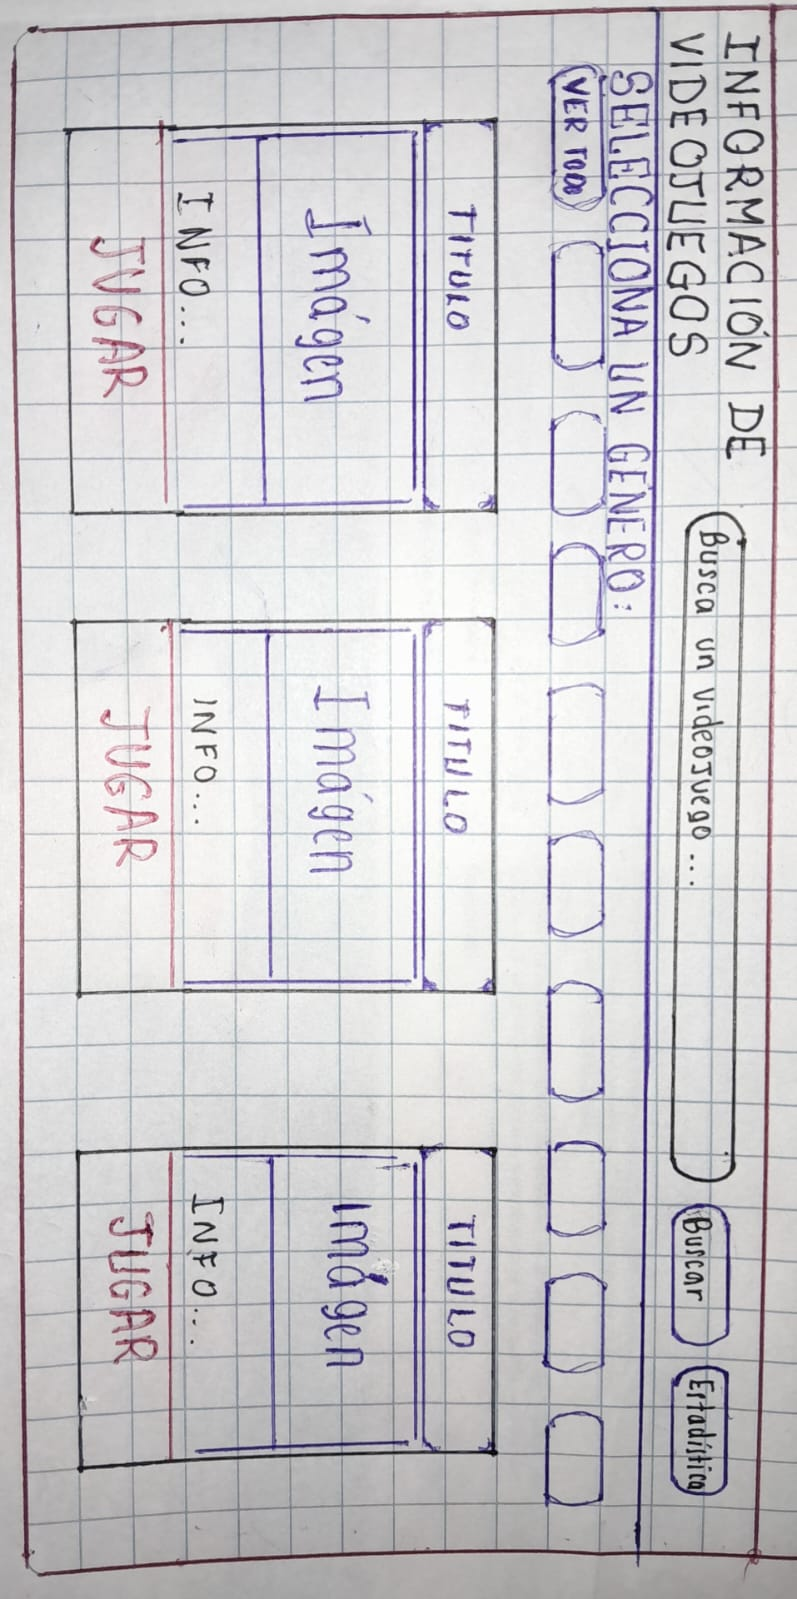 INFORMACIÓN DE
VIDEOJUEGOS
Busca un videoJuego...
Buscar
Estadística
SELECCIONA UN GÉNERO:
VER TODO
TITULO
Imágen
INFO...
JUGAR
TITULO
Imágen
INFO...
JUGAR
TITULO
imágen
INFO....
JUGAR